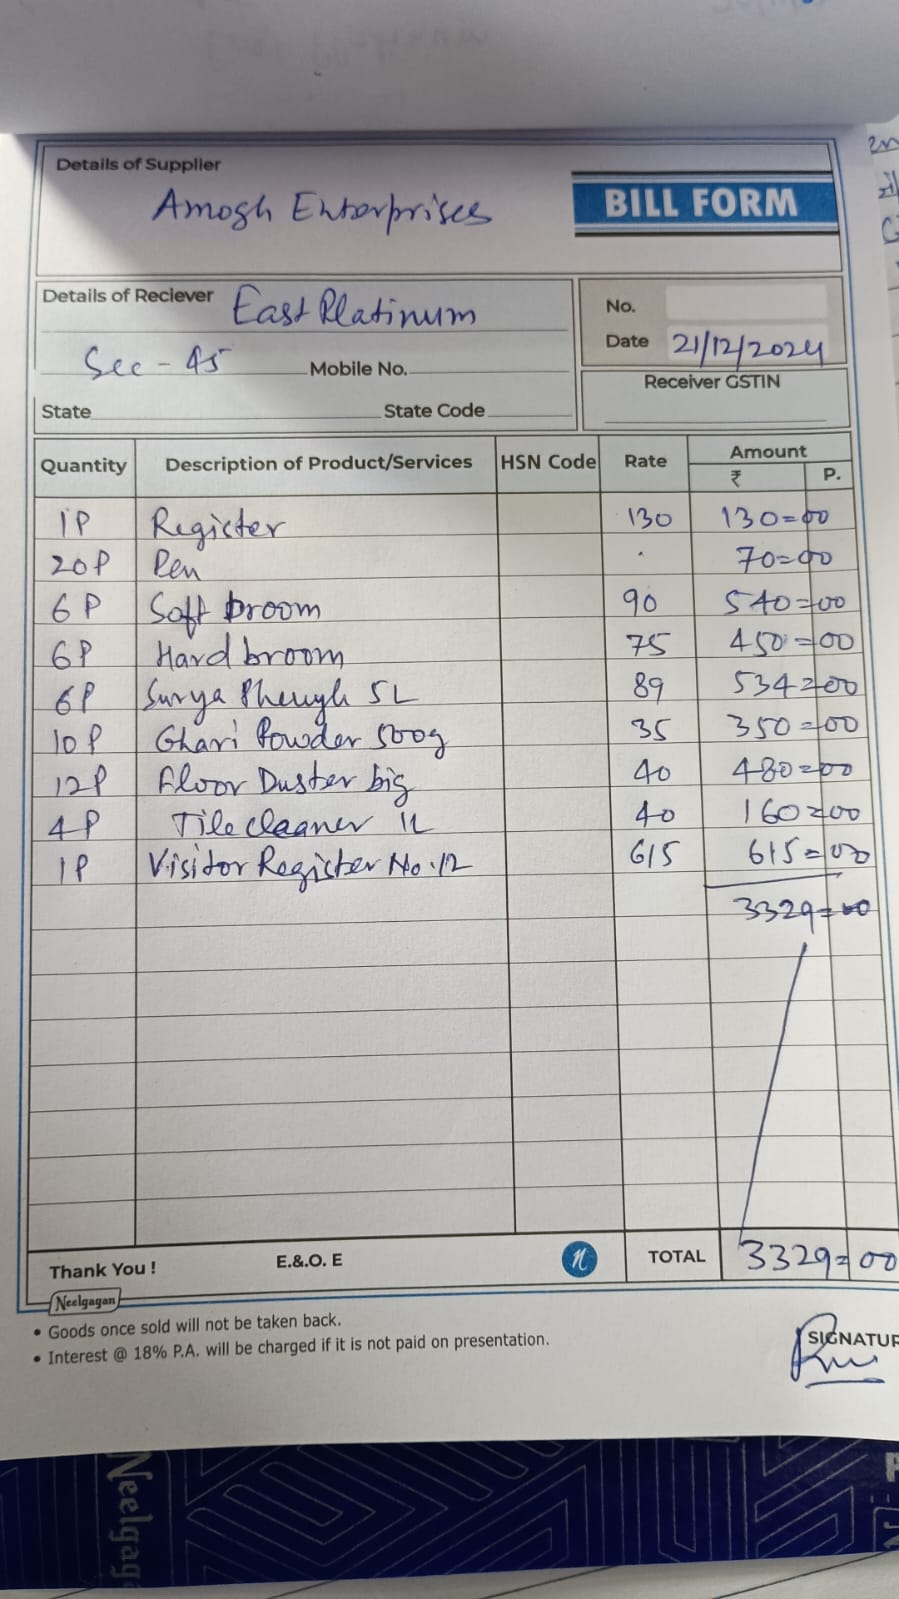 Details of Supplier
Amogh Enterprises
BILL FORM
Details of Reciever East Platinum
No.
Sec - 45 Mobile No.
Date 21/12/2024
Receiver GSTIN
State State Code
Quantity Description of Product/Services HSN Code Rate Amount
₹ P.
1P Register 130 130=00
20P Pen 70=00
6P Soft broom 90 540=00
6P Hard broom 75 450=00
6P Surya 5L 89 534=00
10P Ghari Powder 500g 35 350=00
12P Floor Duster big 40 480=00
4P Tile cleaner 1L 40 160=00
1P Visitor Register No.12 615 615=00
3329=00
Thank You ! E.&.O. E n TOTAL 3329=00
Neelgagan
• Goods once sold will not be taken back.
• Interest @ 18% P.A. will be charged if it is not paid on presentation.
SIGNATUR
Neelgag